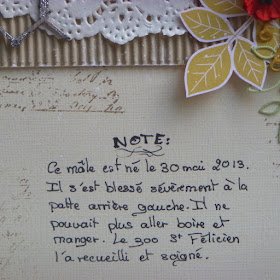 NOTE:
Ce mâle est né le 30 mai 2013.
Il s'est blessé sévèrement à la
patte arrière gauche. Il ne
pouvait plus aller boire et
manger. Le zoo St Félicien
l'a recueilli et soigné.